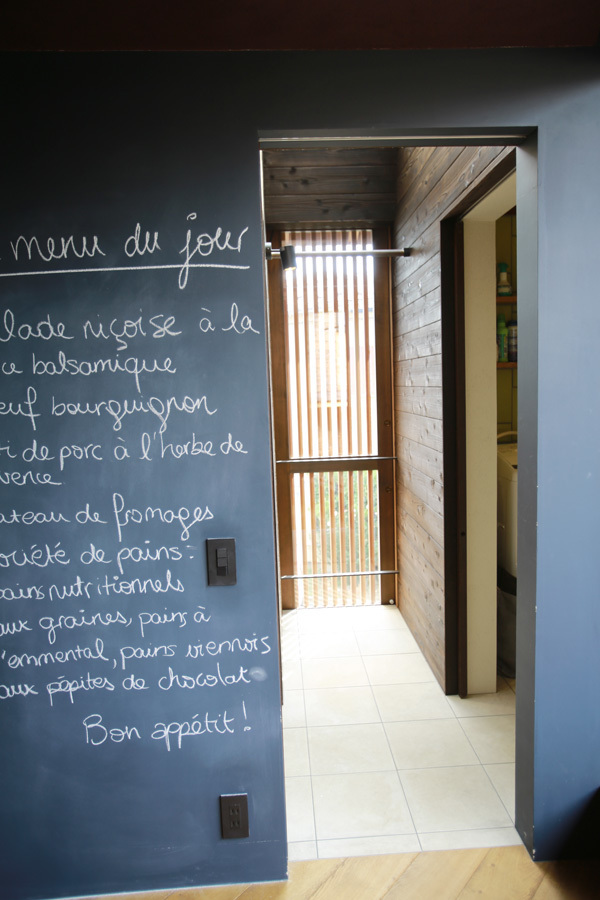 menu du jour
lade niçoise à la
ce balsamique
euf bourguignon
i de porc à l'herbe de
vence
ateau de fromages
ociété de pains:
pains nutritionnels
aux graines, pains à
l'emmental, pains viennois
aux pépites de chocolat
Bon appétit!